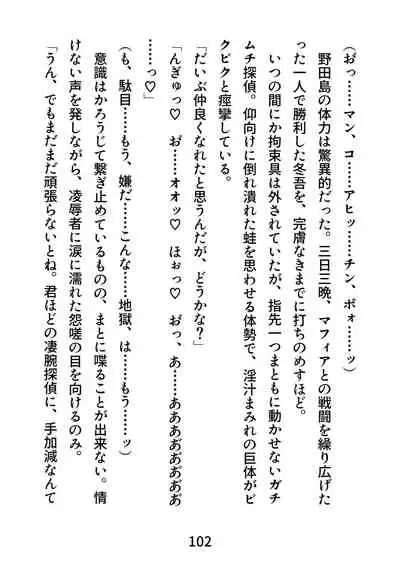 (おっ……マン、コ……アヒッ……チン、ボォ……ッ)
野田島の体力は驚異的だった。三日三晩、マフィアとの戦闘を繰り広げた
った一人で勝利した冬吾を、完膚なきまでに打ちのめすほど。
いつの間にか拘束具は外されていたが、指先一つまともに動かせないガチ
ムチ探偵。仰向けに倒れ潰れた蛙を思わせる体勢で、淫汁まみれの巨体がビ
クビクと痙攣している。
「だいぶ仲良くなれたと思うんだが、どうかな?」
「んぎゅっ♡ お……オオッ♡ ほぉっ♡ おっ、あ……ああああ゙あ゙あ゙あ゙
……っ♡」
(も、駄目……もう、嫌だ……こんな……地獄、は……もう……ッ)
意識はかろうじて繋ぎ止めているものの、まとに喋ることが出来ない。情
けない声を発しながら、凌辱者に涙に濡れた怨嗟の目を向けるのみ。
「うん、でもまだまだ頑張らないとね。君ほどの凄腕探偵に、手加減なんて
102